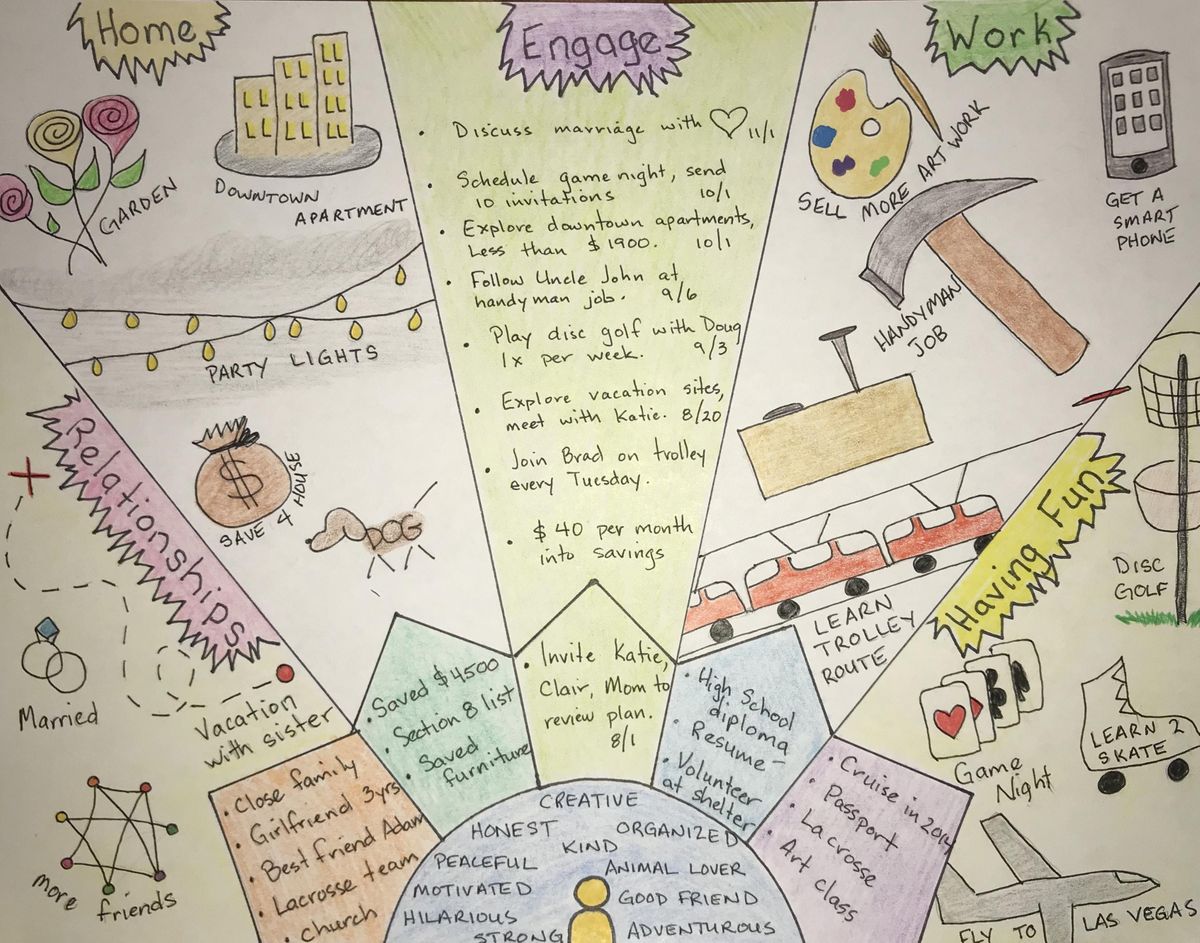 Home
GARDEN
DOWNTOWN
APARTMENT
PARTY LIGHTS
$
SAVE 4 HOUSE
DOG
Engage
• Discuss marriage with ♡ 11/1
• Schedule game night, send
10 invitations 10/1
• Explore downtown apartments,
Less than $1900. 10/1
• Follow Uncle John at
handyman job. 9/6
• Play disc golf with Doug
1x per week. 9/3
• Explore vacation sites,
meet with Katie. 8/20
• Join Brad on trolley
every Tuesday.
• $40 per month
into savings
• Invite Katie,
Clair, Mom to
review plan.
8/1
Work
SELL MORE ART WORK
GET A
SMART
PHONE
HANDYMAN
JOB
LEARN
TROLLEY
ROUTE
Relationships
Married
Vacation
with sister
more friends
Having Fun
DISC
GOLF
LEARN 2
SKATE
Game
Night
FLY TO LAS VEGAS
• Close family
• Girlfriend 3yrs
• Best friend Adam
• Lacrosse team
• Church
• Saved $4500
• Section 8 list
• Saved
furniture
• High School
diploma
• Resume –
• Volunteer
at shelter
• Cruise in 2014
• Passport
• Lacrosse
• Art class
CREATIVE
HONEST ORGANIZED
KIND
PEACEFUL ANIMAL LOVER
MOTIVATED GOOD FRIEND
HILARIOUS
STRONG ADVENTUROUS